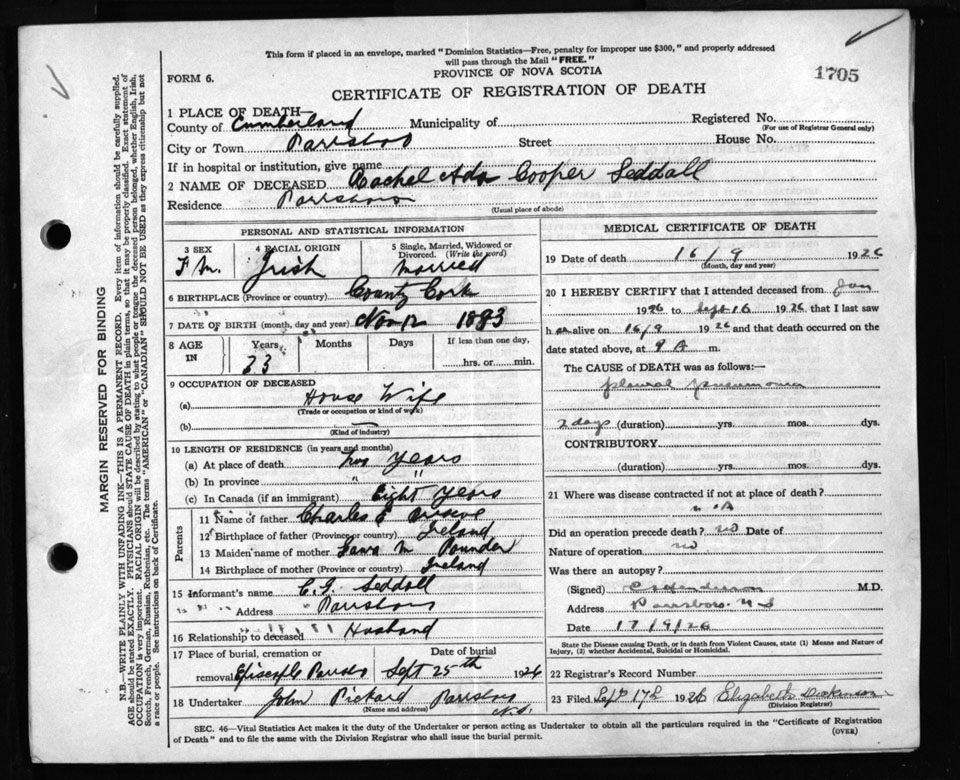 This form if placed in an envelope, marked "Dominion Statistics—Free, penalty for improper use $300," and properly addressed
will pass through the Mail "FREE."
FORM 6.
PROVINCE OF NOVA SCOTIA
1705
CERTIFICATE OF REGISTRATION OF DEATH
1 PLACE OF DEATH—
County of Cumberland Municipality of
Registered No.
(For use of Registrar General only)
City or Town Parrsboro Street House No.
If in hospital or institution, give name
2 NAME OF DECEASED Rachel Ada Cooper Seddall
Residence Parrsboro
(Usual place of abode)
PERSONAL AND STATISTICAL INFORMATION
3 SEX
4 RACIAL ORIGIN
5 Single, Married, Widowed or
Divorced. (Write the word)
Fm. Irish Married
6 BIRTHPLACE (Province or country) County Cork
7 DATE OF BIRTH (month, day and year) Nov 12 1883
8 AGE IN
Years Months Days
If less than one day,
hrs. or min.
9 OCCUPATION OF DECEASED
(a) House Wife
(Trade or occupation or kind of work)
(b)
(Kind of industry)
10 LENGTH OF RESIDENCE (in years and months)
(a) At place of death two years
(b) In province " "
(c) In Canada (if an immigrant) Eight years
Parents
11 Name of father Charles E
12 Birthplace of father (Province or country) Ireland
13 Maiden name of mother M Pounder
14 Birthplace of mother (Province or country) Ireland
15 Informant's name Seddall
" " Address Parrsboro
16 Relationship to deceased Husband
17 Place of burial, cremation or
removal Parrsboro
Date of burial
Sept 25th 1926
18 Undertaker John Pickard Parrsboro
N.S.
(Name and address)
MEDICAL CERTIFICATE OF DEATH
19 Date of death 16/9 1926
(Month, day and year)
20 I HEREBY CERTIFY that I attended deceased from Jan
1926 to Sept 16 1926 that I last saw
her alive on 16/9 1926 and that death occurred on the
date stated above, at 9 A m.
The CAUSE of DEATH was as follows:—
pleural pneumonia
2 days (duration) yrs. mos. dys.
CONTRIBUTORY
(duration) yrs. mos. dys.
21 Where was disease contracted if not at place of death?
Did an operation precede death? no Date of
Nature of operation no
Was there an autopsy?
(Signed) Henderson M.D.
Address Parrsboro N S
Date 17/9/26
State the Disease causing Death, or in death from Violent Causes, state (1) Means and Nature of
Injury, (2) whether Accidental, Suicidal or Homicidal.
22 Registrar's Record Number
23 Filed Sept 17th 1926 Elizabeth Dickinson
(Division Registrar)
SEC. 46—Vital Statistics Act makes it the duty of the Undertaker or person acting as Undertaker to obtain all the particulars required in the "Certificate of Registration
of Death" and to file the same with the Division Registrar who shall issue the burial permit.
(OVER)
MARGIN RESERVED FOR BINDING
N.B.—WRITE PLAINLY WITH UNFADING INK—THIS IS A PERMANENT RECORD. Every item of information should be carefully supplied.
AGE should be stated EXACTLY. PHYSICIANS should STATE CAUSE OF DEATH in plain terms, so that it may be properly classified. Exact statement of
OCCUPATION is very important. RACIAL ORIGIN will be described by stating to what people or tongue the deceased person belonged, whether English, Irish,
Scotch, French, German, Russian, Ruthenian, etc. The terms "AMERICAN" or "CANADIAN" SHOULD NOT BE USED as they express citizenship but not
a race or people. See instructions on back of Certificate.